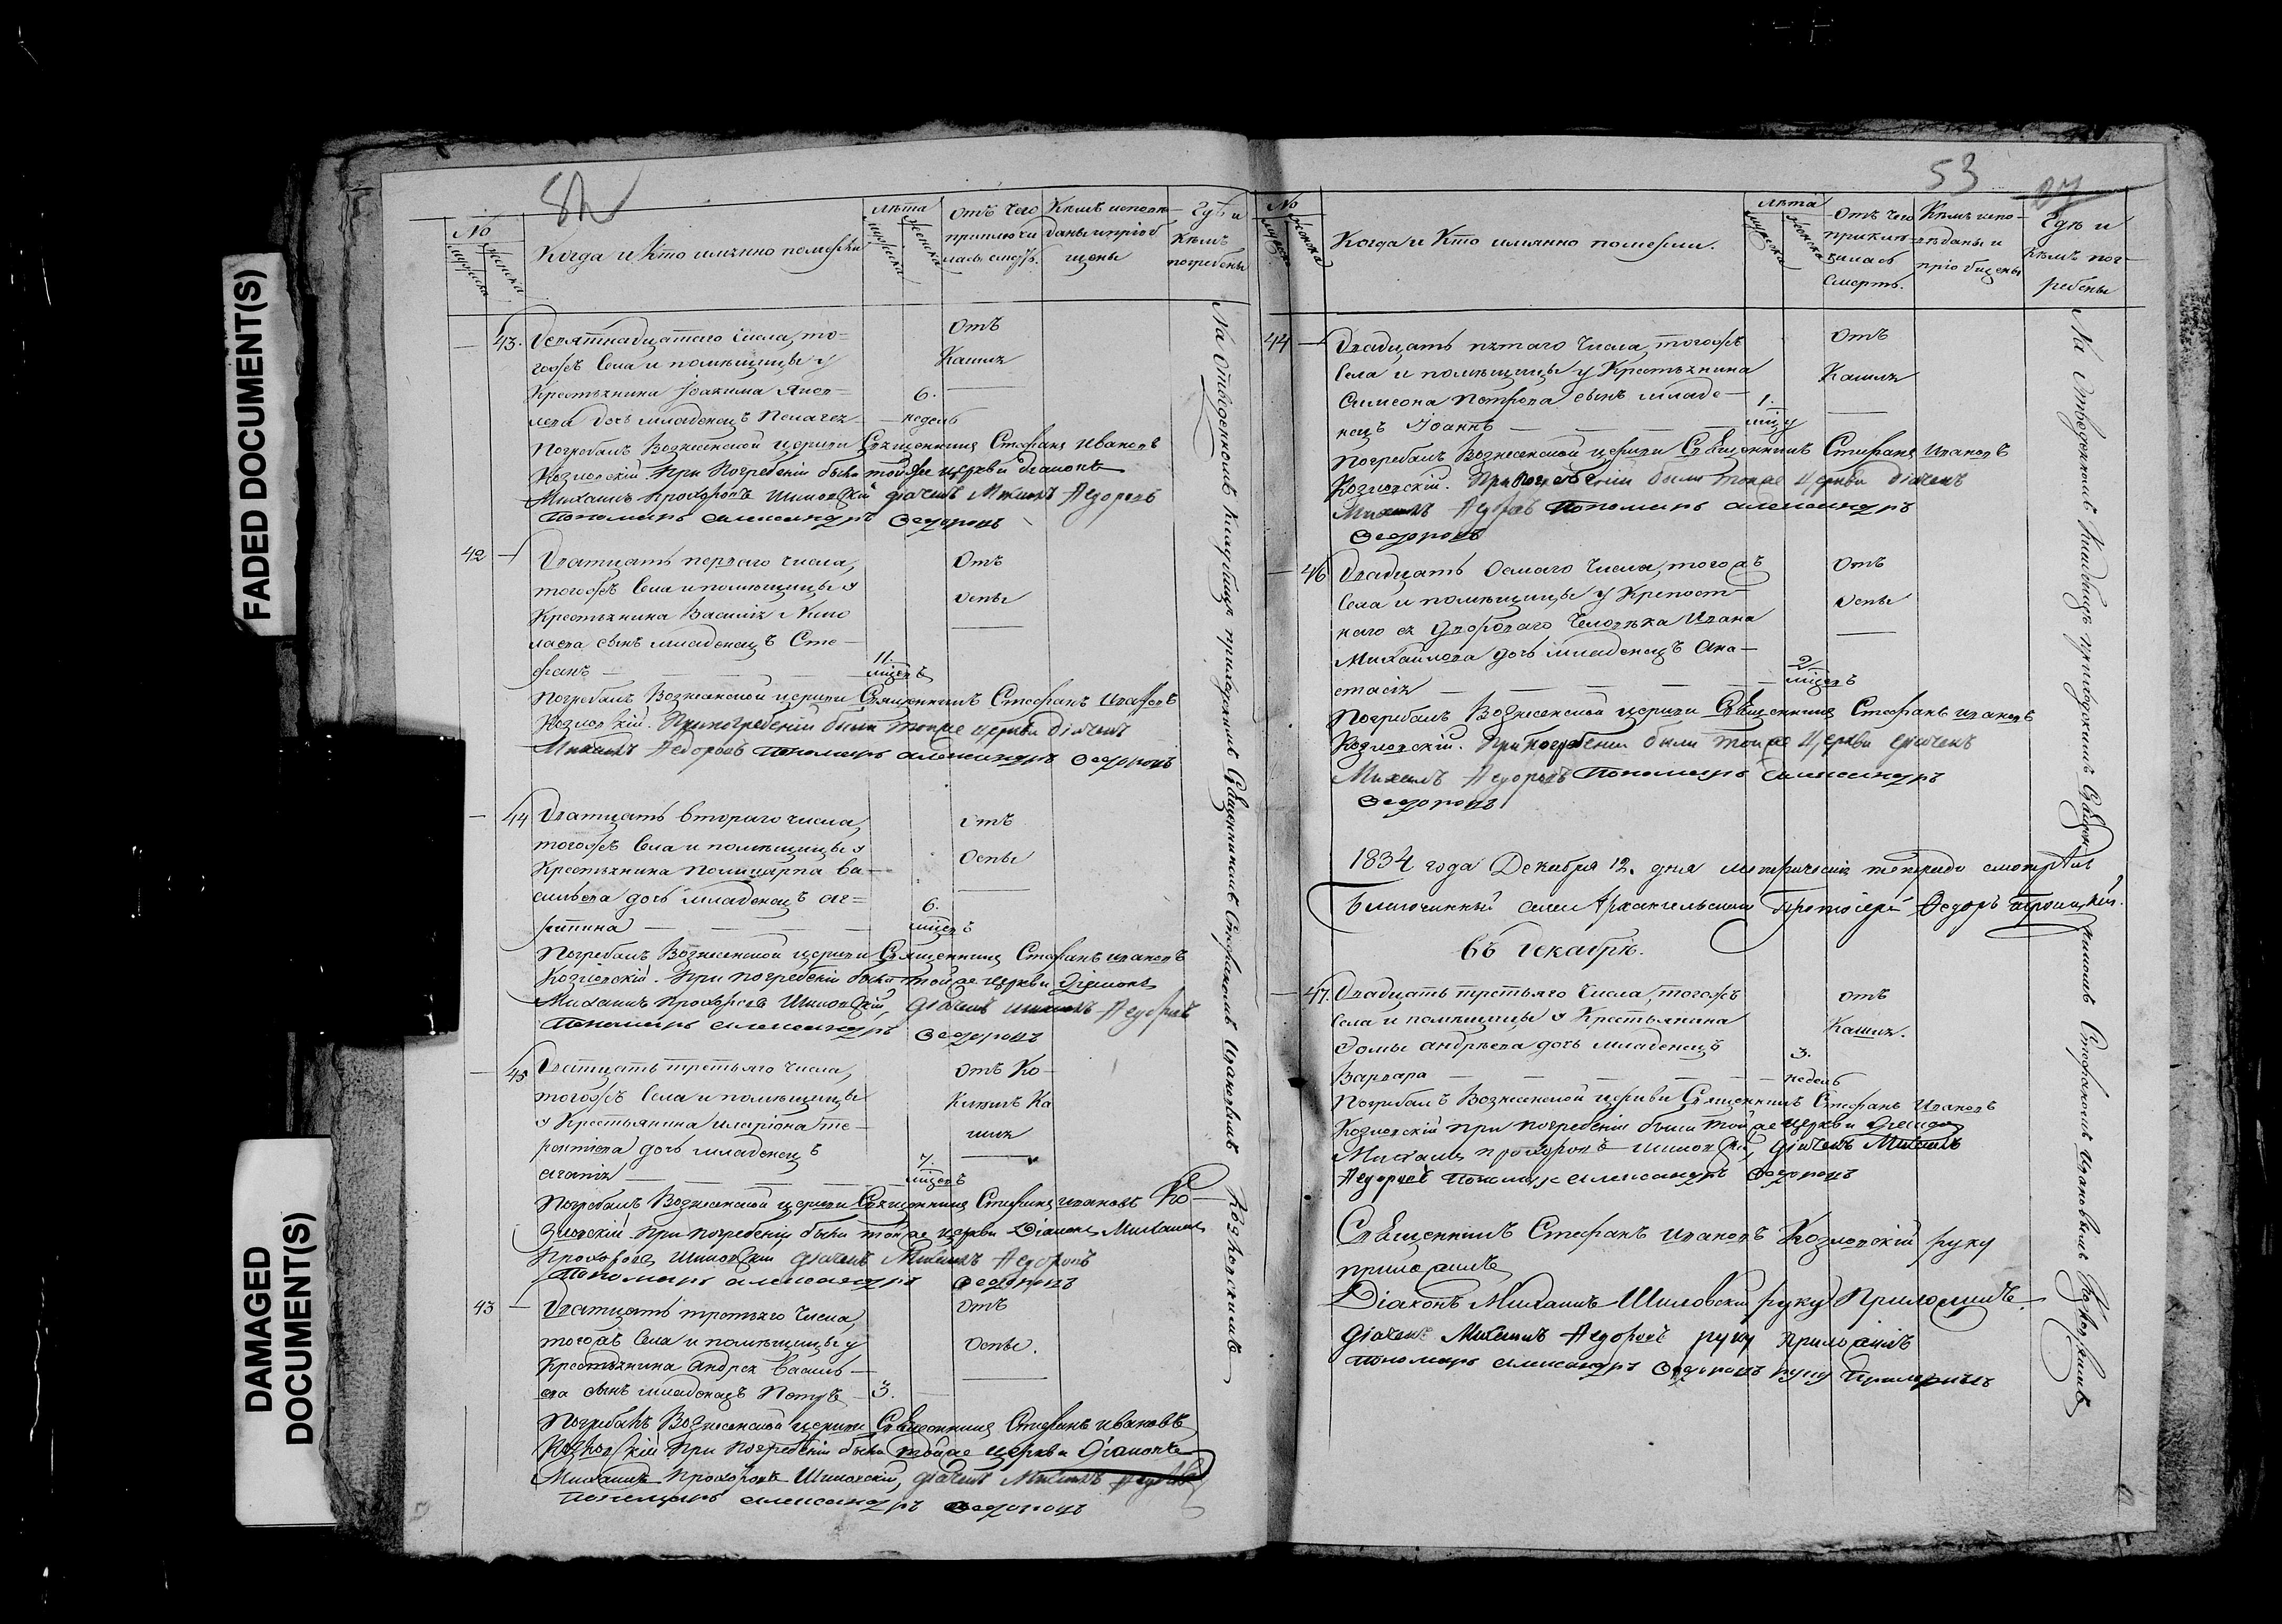 FADED DOCUMENT(S)
DAMAGED
DOCUMENT(S)
№
мужеска
женска
Когда и Кто имянно померли
лѣта
мужеска
женска
Отъ чего
приключи
лась смерть.
Кѣмъ исповѣ-
даны и пріоб
щены
Гдѣ и
кѣмъ
погребены
43. Девятнадцатаго числа, то-
гожъ Села и помѣщицы у
Крестьянина Іоакима
дочь младенецъ Пелагея
6.
недель
Отъ
Кашля
Погребалъ Вознесенской церкви Священникъ Стефанъ Ивановъ
Козловскій. При Погребеніи были той же церкви Діаконъ
Михаилъ Прохоровъ Шиловскій діачекъ Михаилъ Ѳедоровъ
Пономарь Александръ Ѳедоровъ
42 Дватцать перваго числа,
тогожъ Села и помѣщицы у
Крестьянина Василія Нико
лаева сынъ младенецъ Сте-
фанъ
11.
мцовъ
Отъ
Оспы
Погребалъ Вознесенской церкви Священникъ Стефанъ Ивановъ
Козловскій. При погребеніи были тойже церкви діачекъ
Михаилъ Ѳедоровъ Пономарь Александръ Ѳедоровъ
44 Дватцать втораго числа,
тогожъ Села и помѣщицы у
Крестьянина Поликарпа Ва-
сильева дочь младенецъ Аг-
рипина
6.
мцовъ
Отъ
Оспы
Погребалъ Вознесенской церкви Священникъ Стефанъ Ивановъ
Козловскій. При погребеніи были тойже церкви Діаконъ
Михаилъ Прохоровъ Шиловскій, діачекъ Михаилъ Ѳедоровъ
Пономарь Александръ Ѳедоровъ
45 Дватцать третьяго числа,
тогожъ Села и помѣщицы
у Крестьянина Иларіона Те-
рентіева дочь младенецъ
Агапія
7.
мцовъ
отъ Ко-
Ка
шля
Погребалъ Вознесенской церкви Священникъ Стефанъ Ивановъ Ко-
зловскій При погребеніи были тойже церкви Діаконъ Михаилъ
Прохоровъ Шиловскій діачекъ Михаилъ Ѳедоровъ
Пономарь Александръ Ѳедоровъ
43 Дватцать третьяго числа,
тогожъ Села и помѣщицы у
Крестьянина Андрея Василь-
ева сынъ младенецъ Петръ
3.
Отъ
Оспы.
Погребалъ Вознесенской церкви Священникъ Стефанъ Ивановъ
Козловскій При погребеніи были тойже церкви Діаконъ
Михаилъ Прохоровъ Шиловскій, діачекъ Михаилъ Ѳедоровъ
Пономарь Александръ Ѳедоровъ
На Отведенномъ Кладбище приходскимъ Священникомъ Стефаномъ Ивановымъ Козловскимъ
53
27
№
мужеска
женска
Когда и Кто имянно померли.
лѣта
мужеска
женска
Отъ чего
приклю-
чилась
Смерть.
Кѣмъ испо-
вѣданы и
пріобщены
Гдѣ и
Кѣмъ пог-
ребены
44 Двадцать пятаго числа, тогожъ
Села и помѣщицы у Крестьянина
Симеона Петрова сынъ младе-
нецъ Іоаннъ
1.
мцу
Отъ
Кашля
Погребалъ Вознесенской церкви Священникъ Стефанъ Ивановъ
Козловскій. При погребеніи были тойже Церкви діачекъ
Михаилъ Ѳедоровъ Пономарь Александръ
Ѳедоровъ
46 Двадцать Осмаго числа, тогожъ
Села и помѣщицы у Крепост-
наго ея дворового человѣка Ивана
Михайлова дочь младенецъ Ана-
стасія
2
мцовъ
Отъ
Оспы
Погребалъ Вознесенской церкви Священникъ Стефанъ Ивановъ
Козловскій. При погребении были тойже Церкви діачекъ
Михаилъ Ѳедоровъ Пономарь Александръ
Ѳедоровъ
1834 года Декабря 12. дня метрическія тетради смотрѣлъ
Благочинный Архангельскій Протоіерей Ѳедоръ Троицкій.
Въ Декабрѣ.
47. Двадцать третьяго числа, тогожъ
Села и помѣщицы у Крестьянина
Ѳомы Андрѣева дочь младенецъ
Варвара
3.
недель
отъ
Кашля.
Погребалъ Вознесенской церкви Священникъ Стефанъ Ивановъ
Козловскій при погребеніи были тойже церкви Діаконъ
Михаилъ Прохоровъ Шиловскій, діачекъ Михаилъ
Ѳедоровъ Пономарь Александръ Ѳедоровъ
Священникъ Стефанъ Ивановъ Козловскій руку
приложилъ
Діаконъ Михаилъ Шиловскій руку Приложилъ.
діачекъ Михаилъ Ѳедоровъ руку приложилъ
Пономарь Александръ Ѳедоровъ руку Приложилъ
На Отведенномъ Кладбище приходскимъ Священникомъ Стефаномъ Ивановымъ Козловскимъ